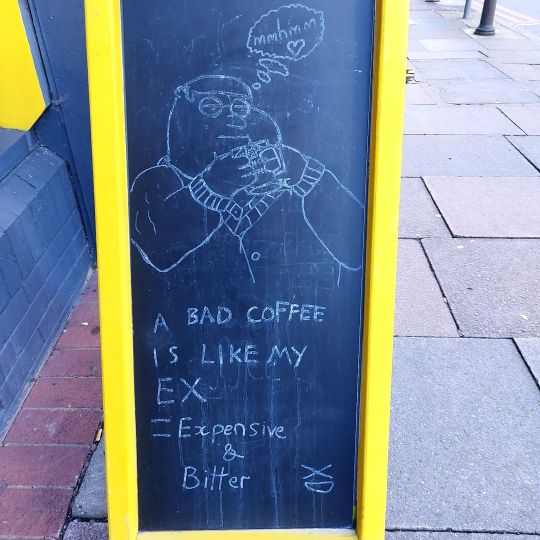 mmhmm
A BAD COFFEE
IS LIKE MY
EX
= Expensive
&
Bitter